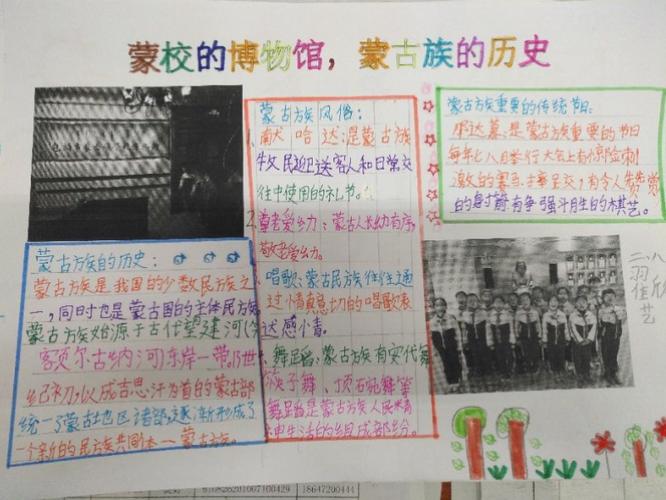 蒙校的博物馆，蒙古族的历史
蒙古族风俗：
1、献哈达：是蒙古族
牧民迎送客人和日常交
往中使用的礼节。
2、尊老爱幼：蒙古人长幼有序，
敬老爱幼。
唱歌：蒙古民族往往通
过情真意切的唱歌表
达感情。
舞蹈：蒙古族有安代舞
筷子舞、顶碗舞等
舞蹈是蒙古族人民精
神生活的组成部分。
蒙古族重要的传统节日：
那达慕是蒙古族重要的节日
每年七八月举行大会上有惊险刺
激的赛马、摔
的射箭有争强斗胜的棋艺。
蒙古族的历史：
蒙古族是我国的少数民族之
一，同时也是蒙古国的主体民族
蒙古族始源于古代望建河(今
额尔古纳河)东岸一带。13世
纪初，以成吉思汗为首的蒙古部
统一了蒙古地区诸部，逐渐形成了
一个新的民族共同体—蒙古族。
二、八
羽佳
艺欣
18647200444